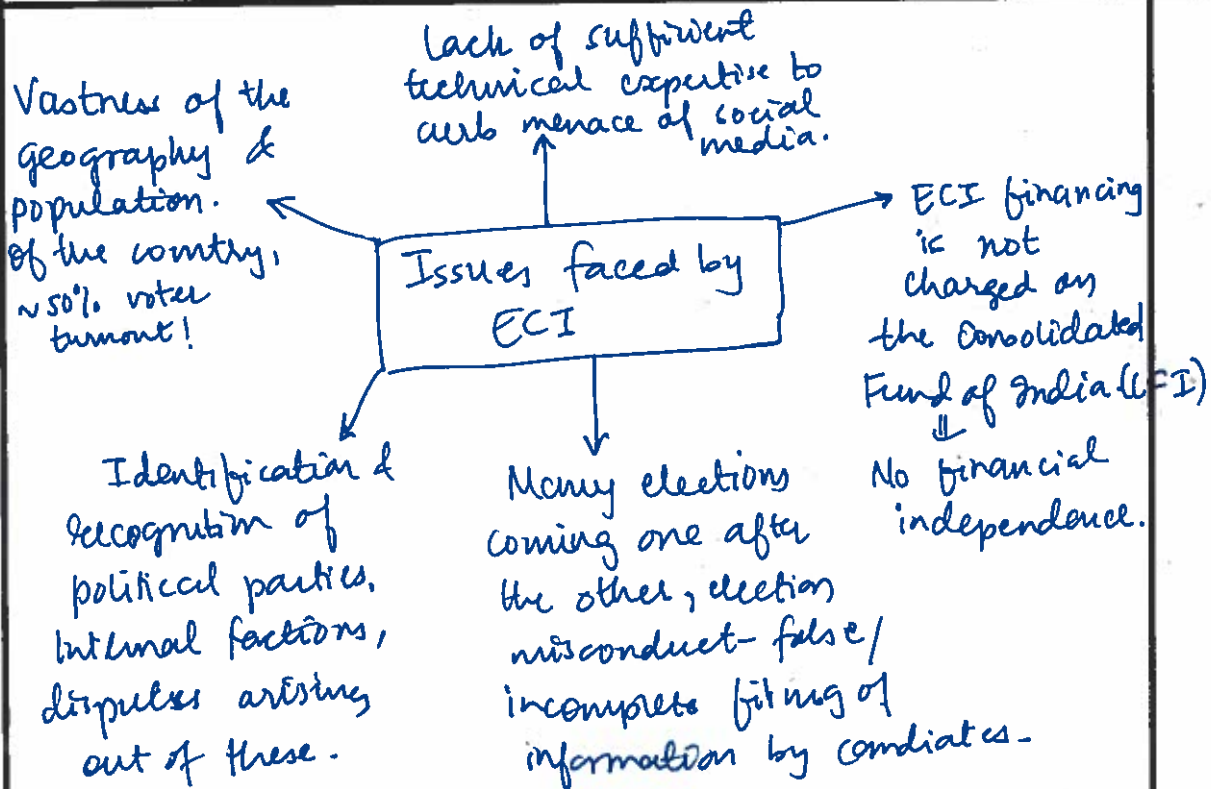 Issues faced by
ECI
Vastness of the
geography &
population.
of the country,
~50% voter
turnout!
Lack of sufficient
technical expertise to
curb menace of social
media.
ECI financing
is not
charged on
the Consolidated
Fund of India (CFI)
⇓
No financial
independence.
Identification &
recognition of
political parties,
internal factions,
disputes arising
out of these.
Many elections
coming one after
the other, election
misconduct- false/
incomplete filing of
information by candiates.